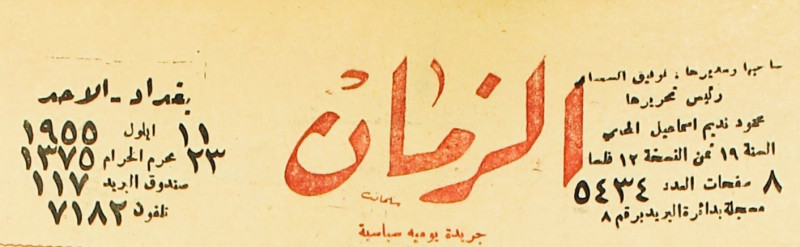 صاحبها ومديرها : توفيق السمعاني
رئيس تحريرها
محمود نديم اسماعيل المحامي
السنة ١٩ ثمن النسخة ١٢ فلسا
٨ صفحات العدد ٥٤٣٤
مسجلة بدائرة البريد برقم ٨
الزمان
سلمان
جريدة يوميه سياسية
بغداد - الاحد
١١ ايلول ١٩٥٥
٢٣ محرم الحرام ١٣٧٥
صندوق البريد ١١٧
تلفون ٧١٨٢